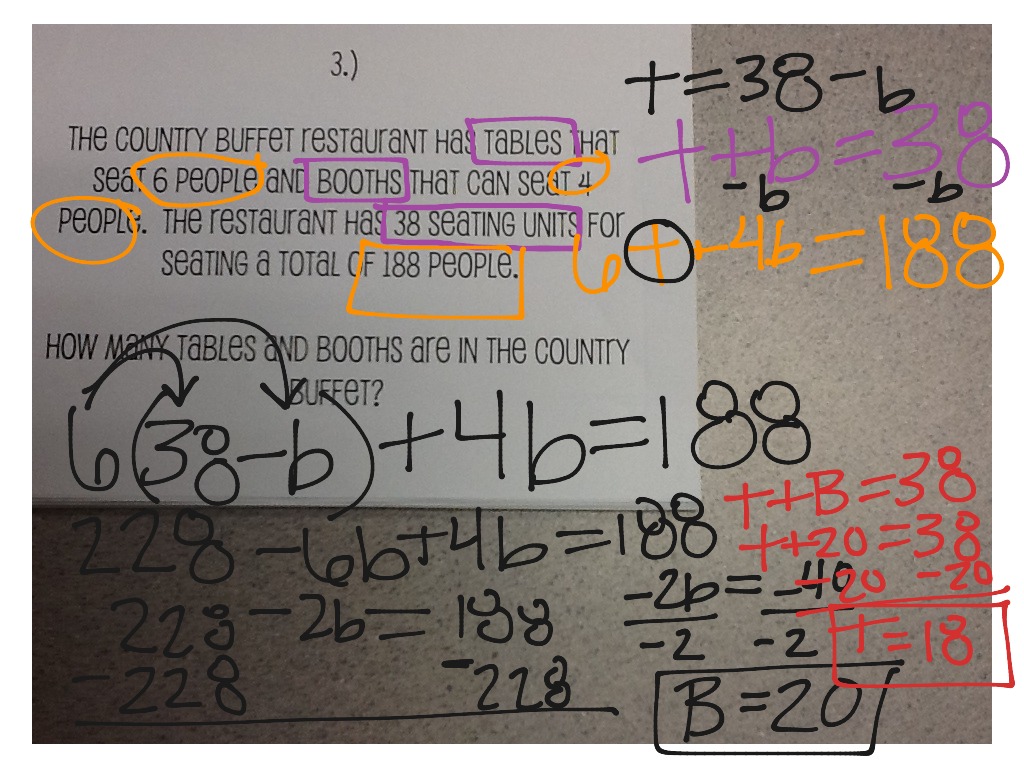 3.)
THE COUNTRY BUFFET RESTAURANT HAS TABLES THAT
SEAT 6 PEOPLE AND BOOTHS THAT CAN SEAT 4
PEOPLE. THE RESTAURANT HAS 38 SEATING UNITS FOR
SEATING A TOTAL OF 188 PEOPLE.
HOW MANY TABLES AND BOOTHS ARE IN THE COUNTRY
BUFFET?
t=38-b
t+b=38
-b -b
6t+4b=188
6(38-b)+4b=188
228-6b+4b=188
228-2b=188
-228 -228
-2b=-40
-2 -2
B=20
t+B=38
t+20=38
-20 -20
t=18